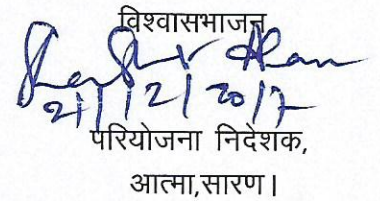 विश्वासभाजन
21/12/2017
परियोजना निदेशक,
आत्मा,सारण।